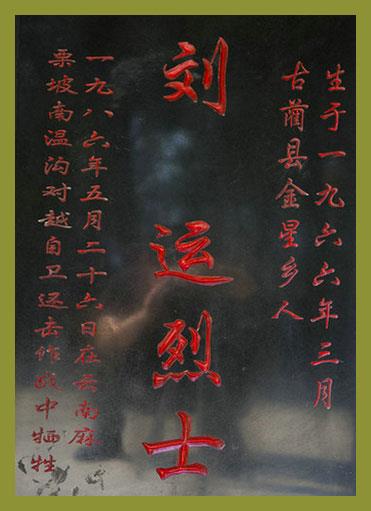 生于一九六六年三月
古蔺县金星乡人
刘运烈士
一九八六年五月二十六日在云南麻
栗坡南温沟对越自卫还击作战中牺牲